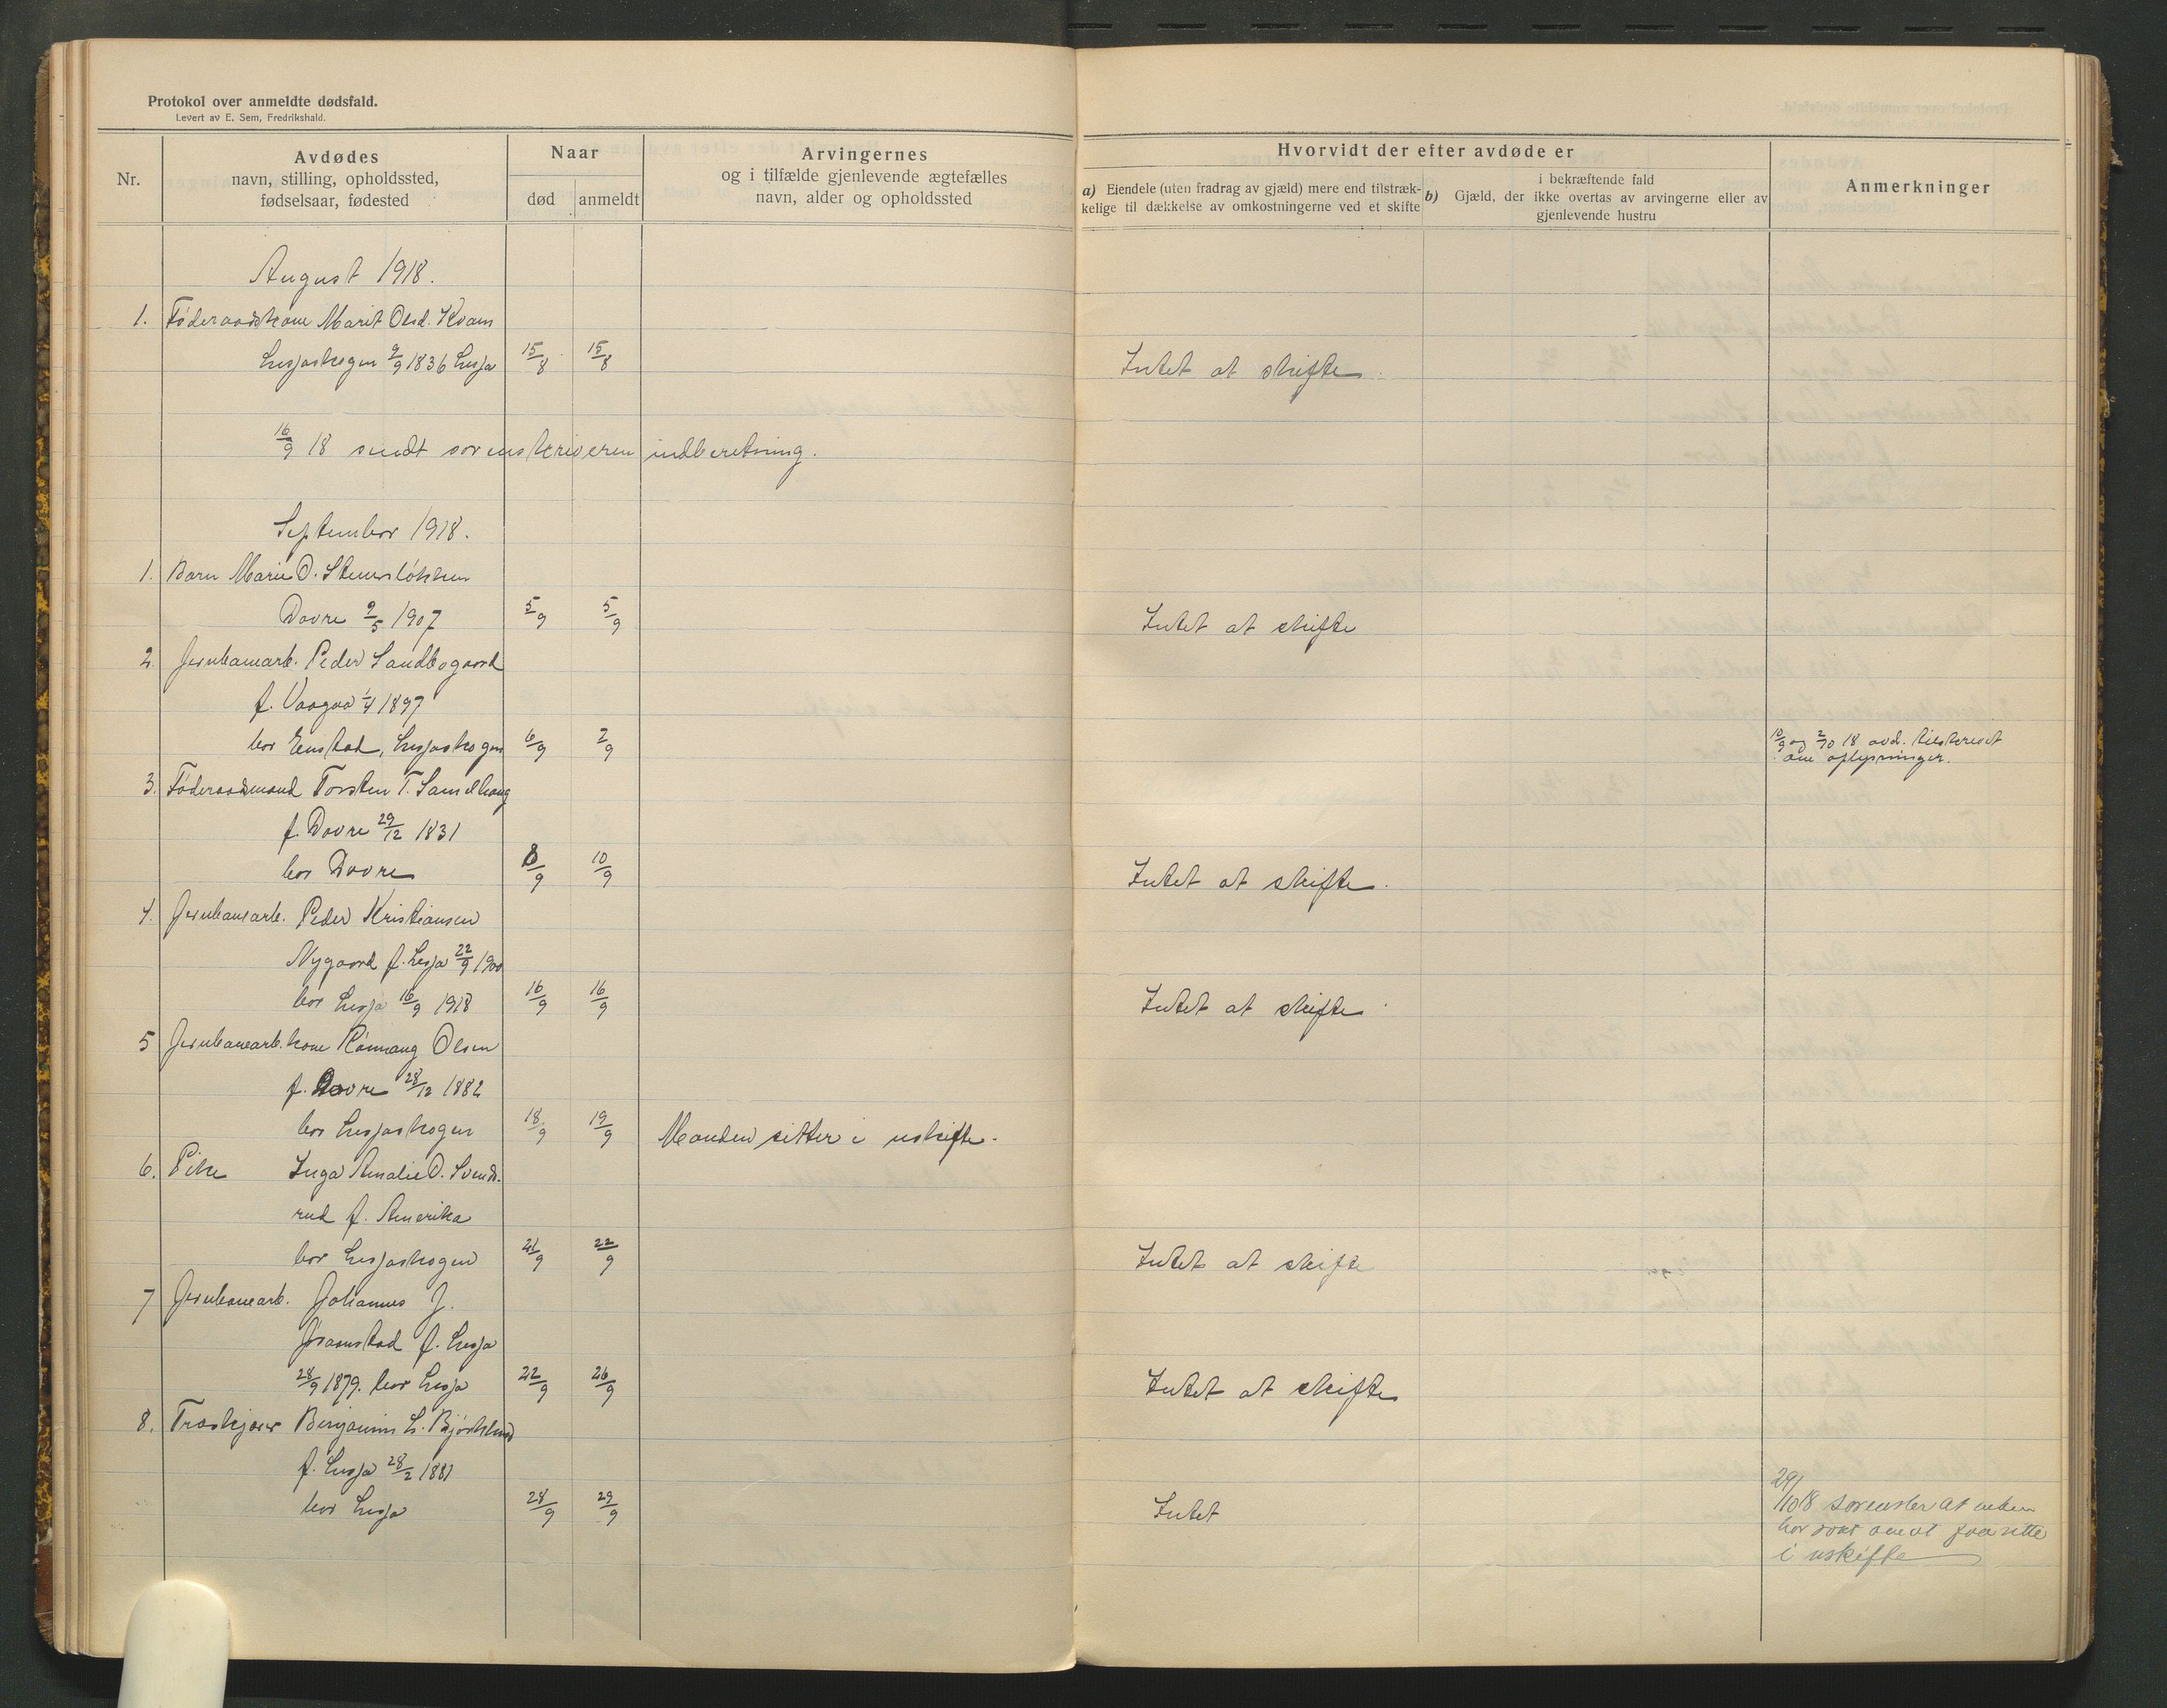 Protokol over anmeldte dødsfald.
Levert av E. Sem, Fredrikshald.
Nr.
Avdødes
navn, stilling, opholdssted,
fødselsaar, fødested
Naar
død
anmeldt
Arvingernes
og i tilfælde gjenlevende ægtefælles
navn, alder og opholdssted
Hvorvidt der efter avdøde er
a) Eiendele (uten fradrag av gjæld) mere end tilstræk-
kelige til dækkelse av omkostningerne ved et skifte
i bekræftende fald
b) Gjæld, der ikke overtas av arvingerne eller av
gjenlevende hustru
Anmerkninger
August 1918.
1. Føderaadskone Marit Olsd. Kvam
Lesjaskogen 9/9 1836 Lesja 15/8 15/8 Intet at skifte.
16/9 18 sendt sorenskriveren indberetning.
September 1918.
1. Barn Marie O.
Dovre 9/5 1907 5/9 5/9 Intet at skifte
2. Jernbanearb. Peder Sandbogaard
f. Vaagaa 1/4 1897
bor Enstad, Lesjaskogen 6/9 7/9 10/9 og 2/10 18 avd. tilskrevet
om oplysninger.
3. Føderaadsmand Torsten T. Landhaug
f. Dovre 29/12 1831
bor Dovre 8/9 10/9 Intet at skifte.
4. Jernbanearb. Peder Kristiansen
Nygaard f. Lesja 22/9 1900
bor Lesja 16/9 1918 16/9 16/9 Intet at skifte
5 Jernbanearb. kone Rønnaug Olsen
f. Dovre 28/12 1882
bor Lesjaskogen 18/9 19/9 Manden sitter i uskifte.
6. Pike Inga Amalie O. Svends-
rud f. Amerika
bor Lesjaskogen 21/9 22/9 Intet at skifte
7 Jernbanearb. Johannes J.
Joramstad f. Lesja
28/9 1879. bor Lesja 22/9 26/9 Intet at skifte
8. Træskjærer Benjamin L. Bjørklund
f. Lesja 28/2 1881
bor Lesja 28/9 29/9 Intet
29/10 18 sorenskr at enken
har om at faa sitte
i uskifte